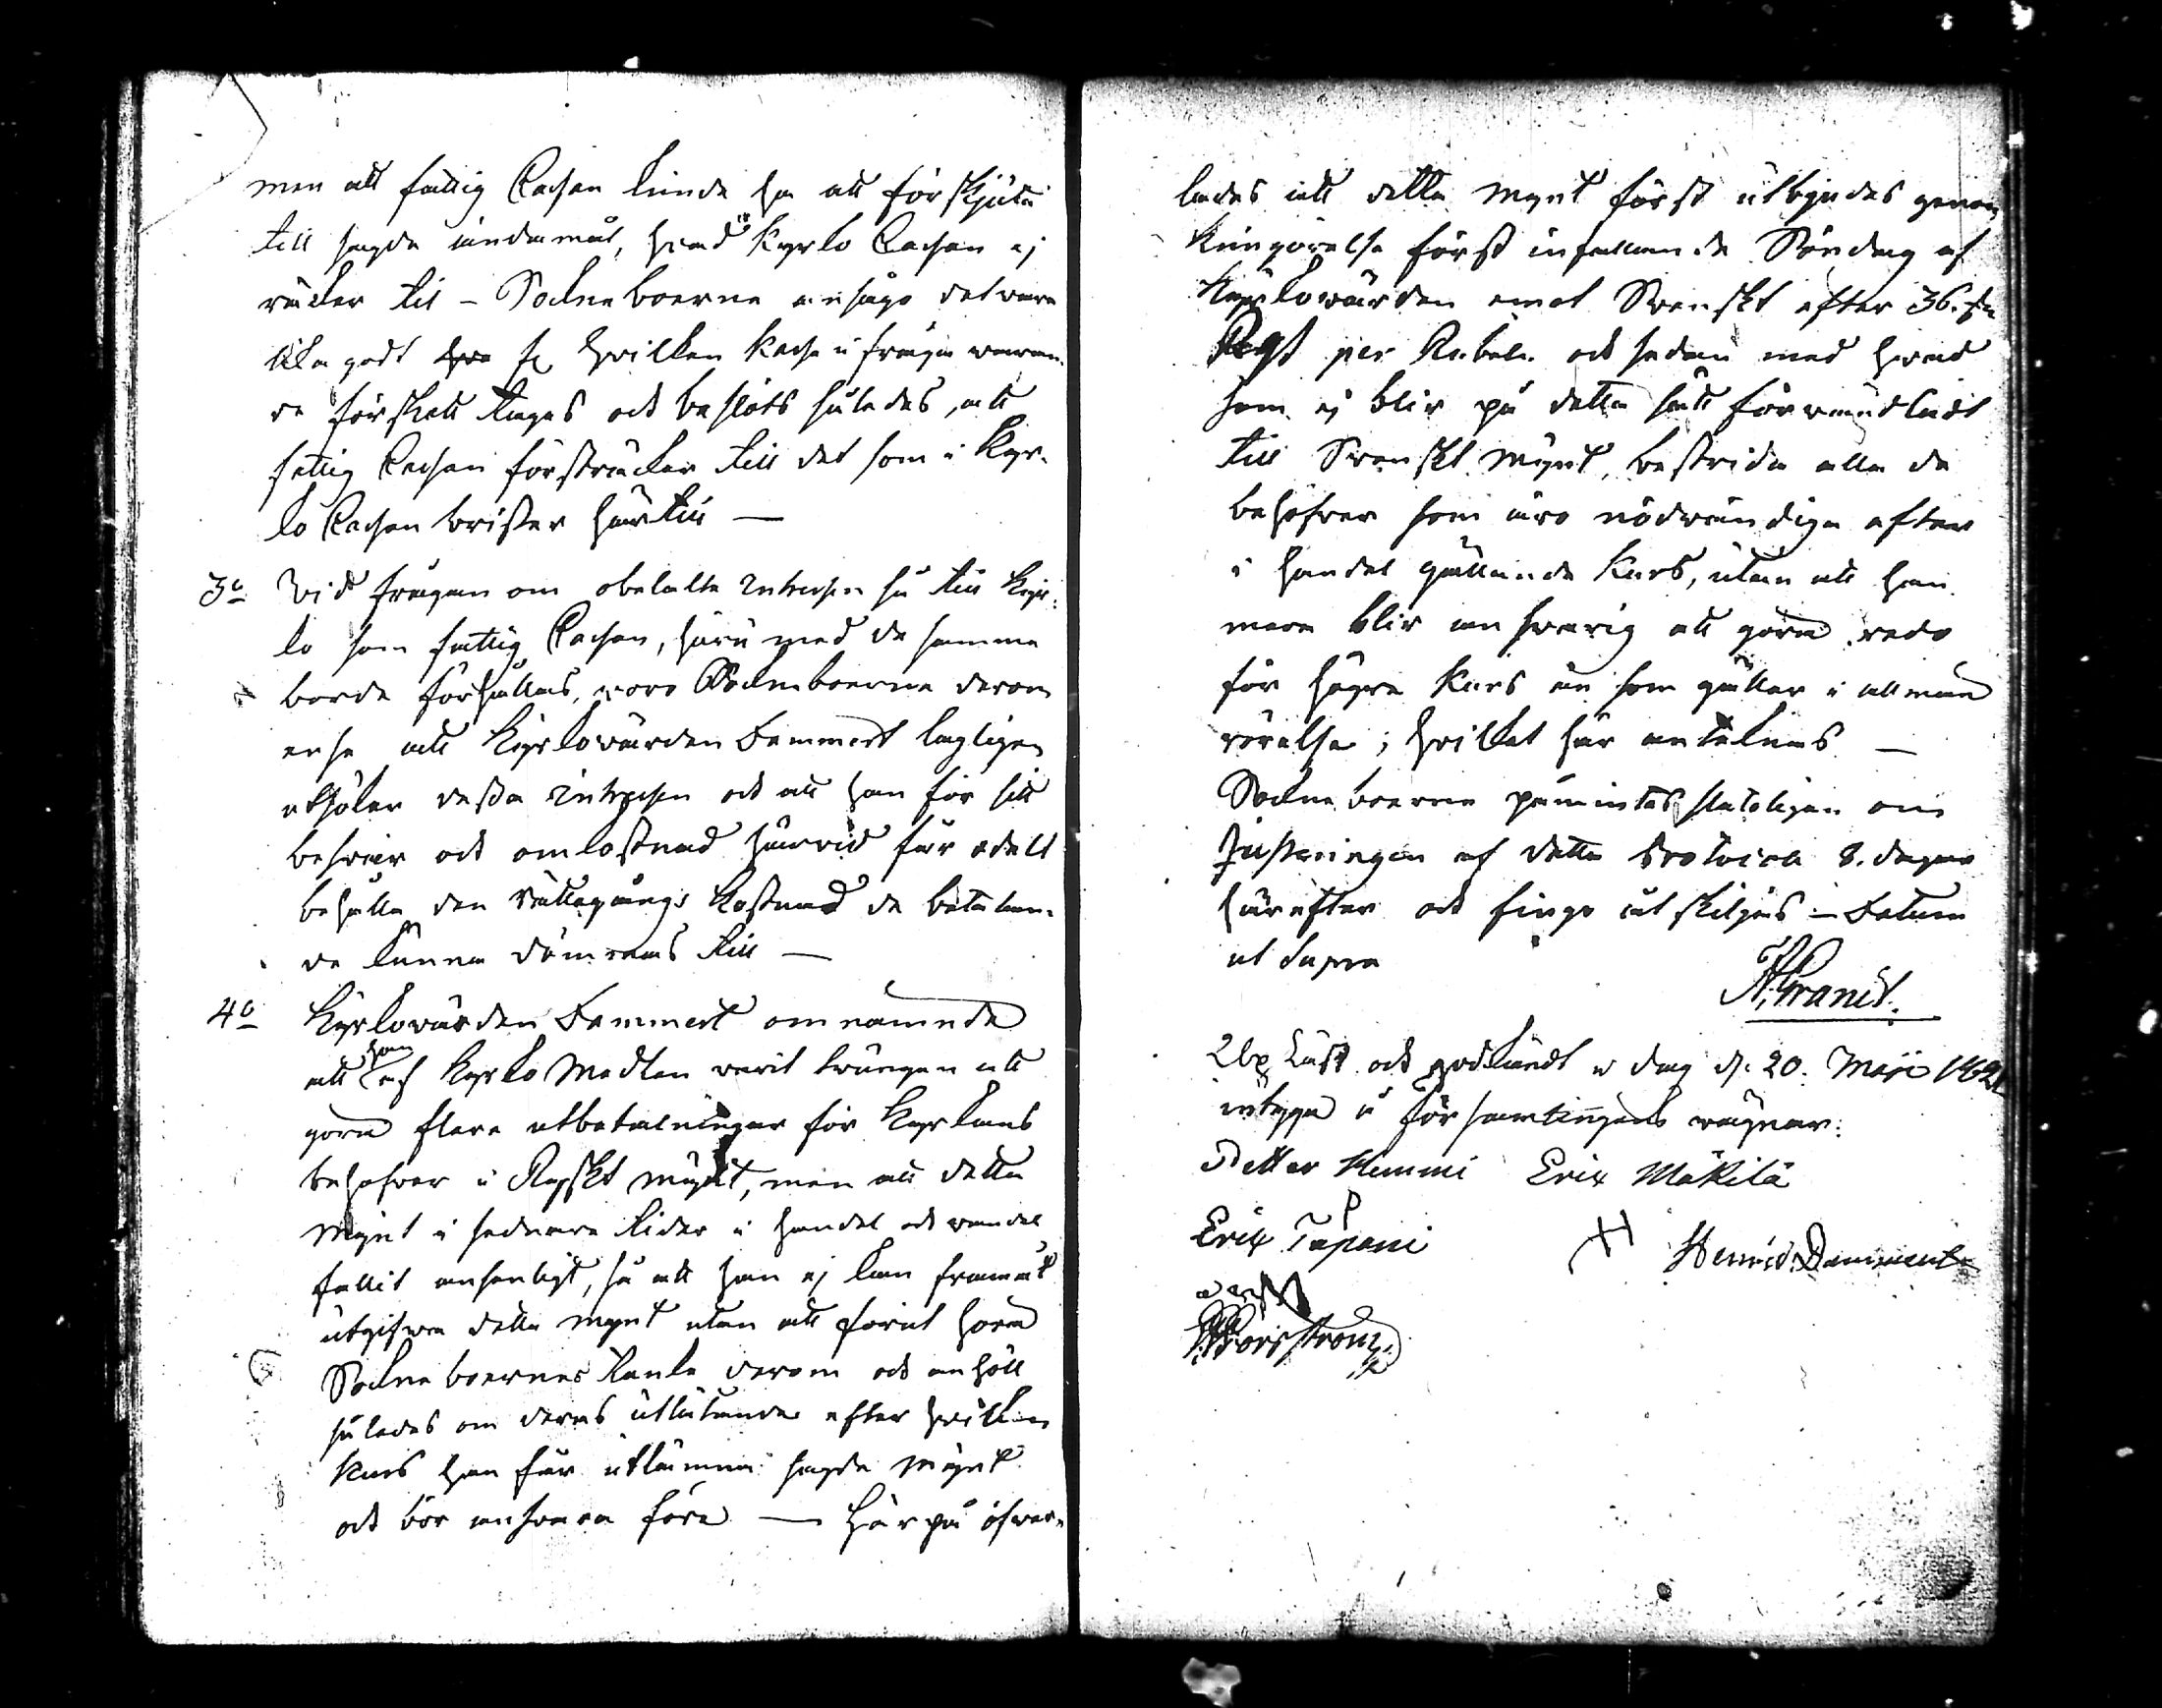 men att fattig Cassan kunde ha att förskjuta
till sagde ändamål, hvad Kyrko Cassan ej
räcker til – Sockneboerne ansågo det vara
lika godt af hvilken Kassa i fråga waran-
de förskott tages och beslöts således, att
fattig Cassan försträcker till det som i Kyr-
ko Cassan brister härtill —
3o Vid frågan om obetalte Intressen så till Kyr-
ko som fattig Cassan, huru med de samma
borde förhållas, voro Sockneboerne derom
ense att Kyrkowärden Dammert lagligen
utsöker dessa Intressen och att han för sitt
besvär och omkostnad härvid får
behålla den Rättegångs Kostnad de betalan-
de kunna dömmas till —
4o Kyrkowärden Dammert omnämnde
att han af Kyrko Medlen varit tvungen att
göra flere utbetalningar för Kyrkans
behofver i Rysskt mynt, men att detta
Mynt i sednare tider i handel och vandel
fallit ansenligt, så att han ej kan framåt
utgifva detta mynt utan att förut höra
Sockneboernes tanke derom och anhöll
således om deras utlåtande efter hvilken
Kurs han får utlämna sagde Mynt
och bör ansvara före — Härpå öfver-
lades att detta Mynt först utbjudes genom
Kungörelse först infallande Söndag af
Kyrkowärden emot Svenskt efter 36. sk
Rgs per Rubel. och sedan med hvad
som ej blir på detta sätt förvandladt
till Svenskt Mynt, bestrida alla de
behofver som äro nödvändige efter
i handel gällande Kurs, utan att han
mera blir ansvarig att göra redo
för högre Kurs än som gäller i allmän
rörelse; hvilket här anteknas —
Sockneboerne påmintes slutligen om
Justeringen af detta Protocoll 8. dagar
härefter och fingo åtskiljas – Datum
ut Supra
Granit.
Upläst och godkändt i dag d. 20. Maji
intyga å församlingens vägnar:
Petter Hemmi Erix Mäkilä
Erix Tapani Henric Dammert